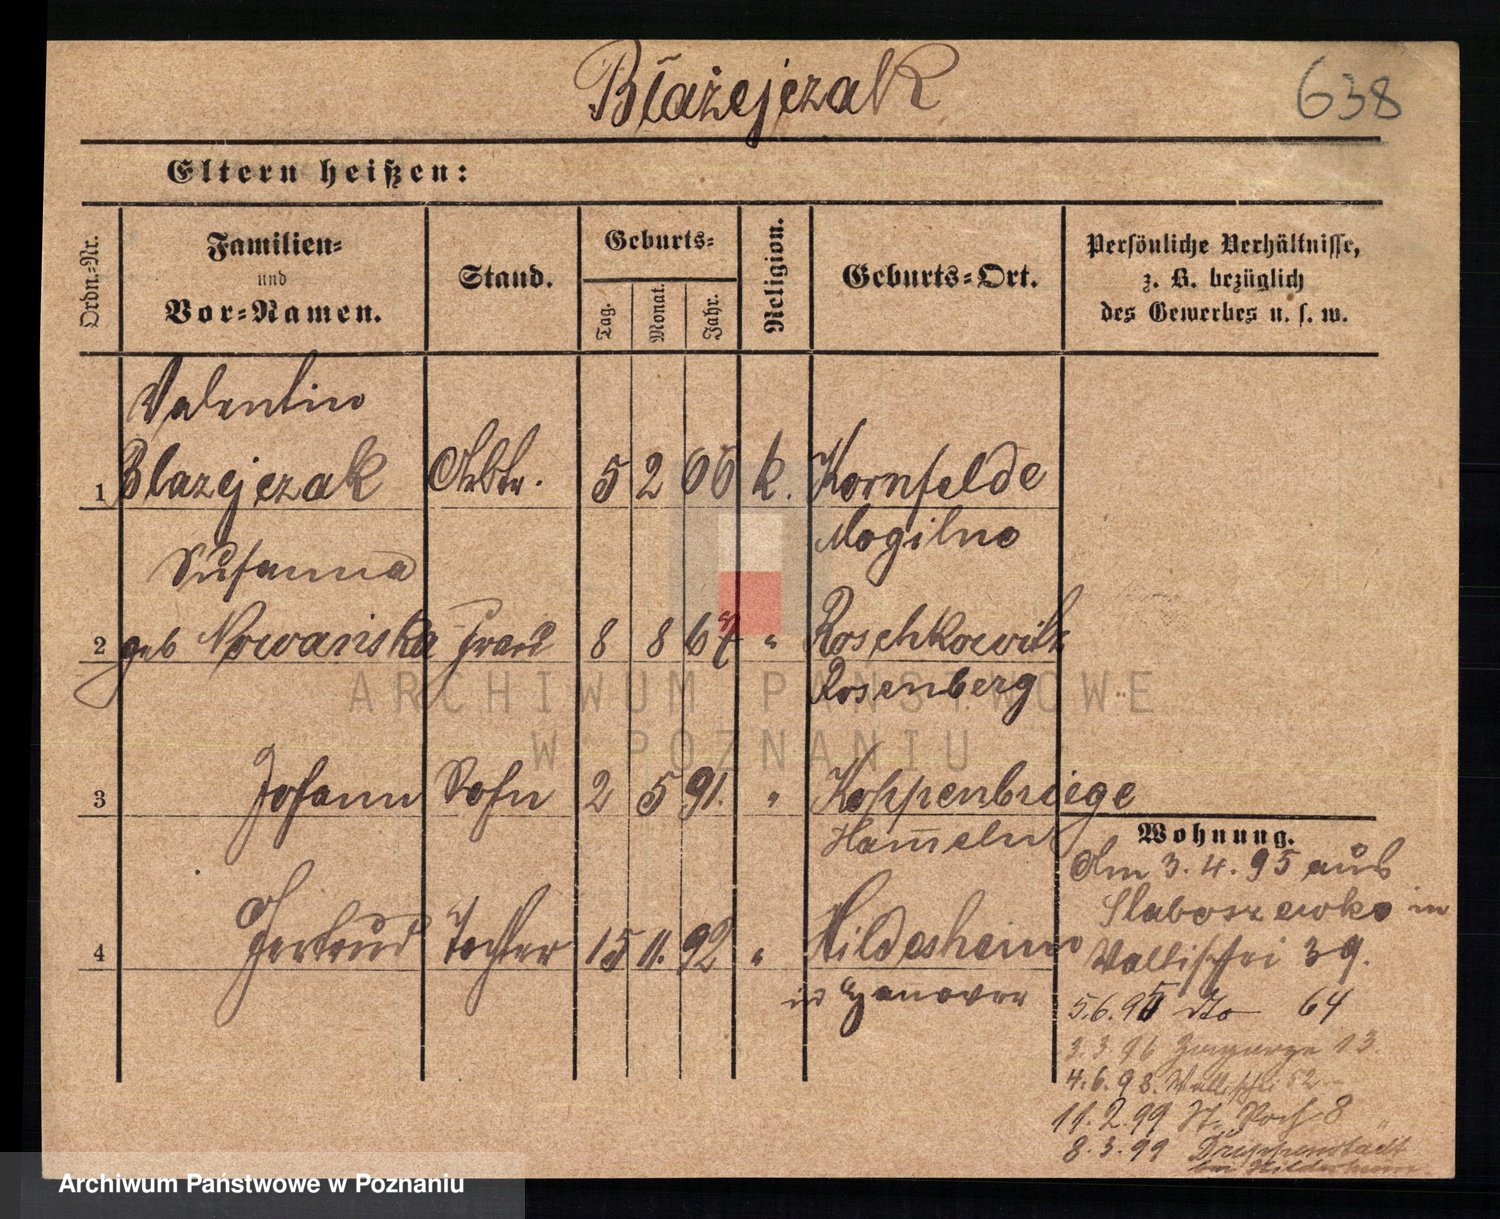 Błażejczak
638
Eltern heißen:
Ordn.-Nr.
Familien-
und
Vor-Namen.
Stand.
Geburts-
Tag.
Monat.
Jahr.
Religion.
Geburts-Ort.
Persönliche Verhältnisse,
z. B. bezüglich
des Gewerbes u. s. w.
Valentin
1 Blazejczak Arbtr. 5 2 66 k. Kornfelde
Mogilno
Susanna
2 geb Nowańska Frau 8 8 67 " Roschkowitz
Rosenberg
3 Johann Sohn 2 5 91. " Koppenbriege
Hameln
Wohnung.
Am 3.4.95 aus
Slaboszewko in
4 Gertrud Tochter 15 11. 92 " Hildesheim
Wallischei 39.
in Hanover
5.6.95 dto 64
3.3.96 13.
4.6.98. Wallischei 52
11.2.99 St. Roch 8
8.3.99
bei Hildesheim
ARCHIWUM PAŃSTWOWE
W POZNANIU
Archiwum Państwowe w Poznaniu